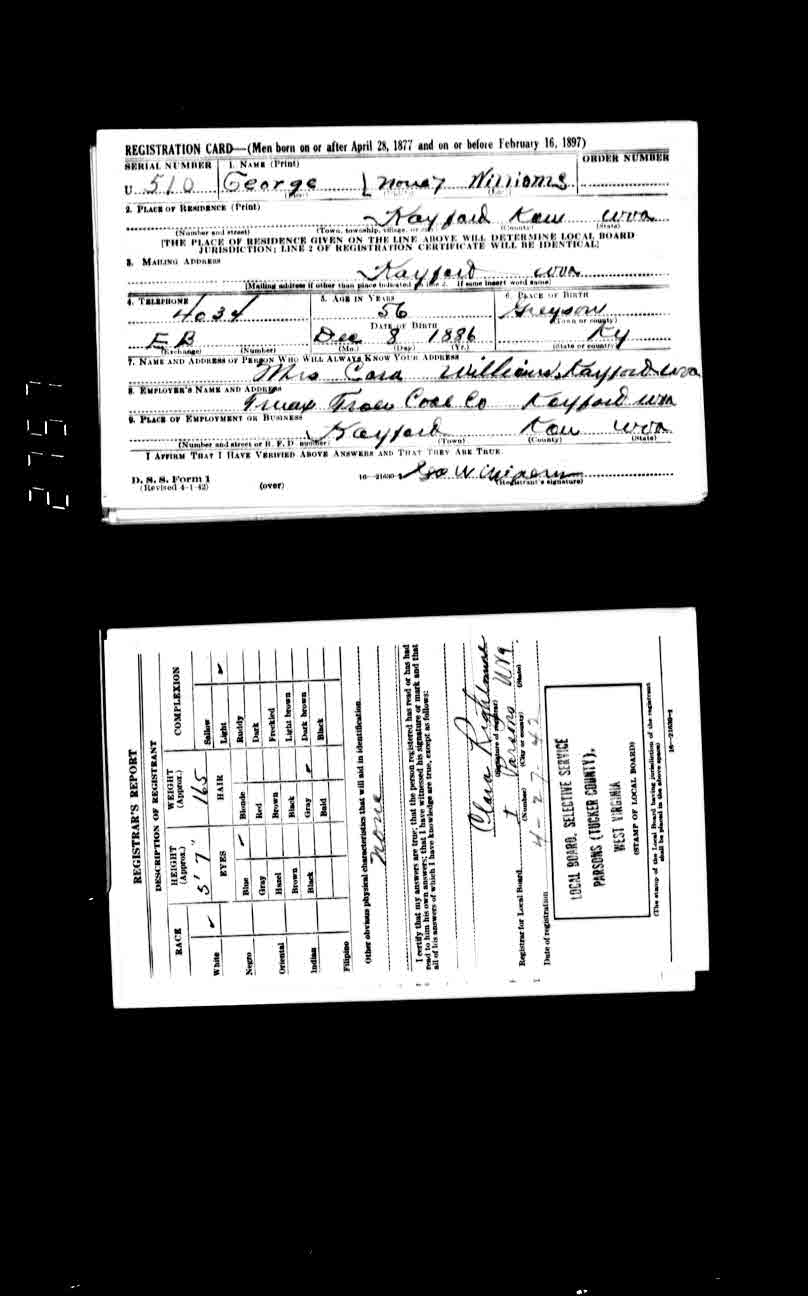 REGISTRATION CARD—(Men born on or after April 28, 1877 and on or before February 16, 1897)
SERIAL NUMBER 1. NAME (Print) ORDER NUMBER
U 510 George Williams
2. PLACE OF RESIDENCE (Print)
Kayford Kan wva
(Number and street) (Town, township, village, or city) (County) (State)
[THE PLACE OF RESIDENCE GIVEN ON THE LINE ABOVE WILL DETERMINE LOCAL BOARD
JURISDICTION; LINE 2 OF REGISTRATION CERTIFICATE WILL BE IDENTICAL]
3. MAILING ADDRESS
Kayford wva
(Mailing address if other than place indicated on line 2. If same insert word same)
4. TELEPHONE 5. AGE IN YEARS 6. PLACE OF BIRTH
4034 56 Greyson
DATE OF BIRTH (Town or county)
EB Dec 8 1886 Ky
(Exchange) (Number) (Mo.) (Day) (Yr.) (State or country)
7. NAME AND ADDRESS OF PERSON WHO WILL ALWAYS KNOW YOUR ADDRESS
Mrs Cora Williams Kayford wva
8. EMPLOYER'S NAME AND ADDRESS
Truax Traer Coal Co Kayford wva
9. PLACE OF EMPLOYMENT OR BUSINESS
Kayford Kan wva
(Number and street or R. F. D. number) (Town) (County) (State)
I AFFIRM THAT I HAVE VERIFIED ABOVE ANSWERS AND THAT THEY ARE TRUE.
D. S. S. Form 1
(Revised 4-1-42) (over) 16—21630 Geo Williams
(Registrant's signature)
2757
REGISTRAR'S REPORT
DESCRIPTION OF REGISTRANT
RACE HEIGHT (Approx.) WEIGHT (Approx.) COMPLEXION
White ✓ 5' 7" 165 Sallow
EYES HAIR Light ✓
Negro Blue ✓ Blonde Ruddy
Gray Red Dark
Oriental Hazel Brown Freckled
Brown Black Light brown
Indian Black Gray ✓ Dark brown
Bald Black
Filipino
Other obvious physical characteristics that will aid in identification
none
I certify that my answers are true; that the person registered has read or has had
read to him his own answers; that I have witnessed his signature or mark and that
all of his answers of which I have knowledge are true, except as follows:
Clara
(Signature of registrar)
Registrar for Local Board 1 Parsons WVa
(Number) (City or county) (State)
Date of registration 4-27-42
LOCAL BOARD, SELECTIVE SERVICE
PARSONS (TUCKER COUNTY),
WEST VIRGINIA
(STAMP OF LOCAL BOARD)
(The stamp of the Local Board having jurisdiction of the registrant
shall be placed in the above space)
16—21630-1